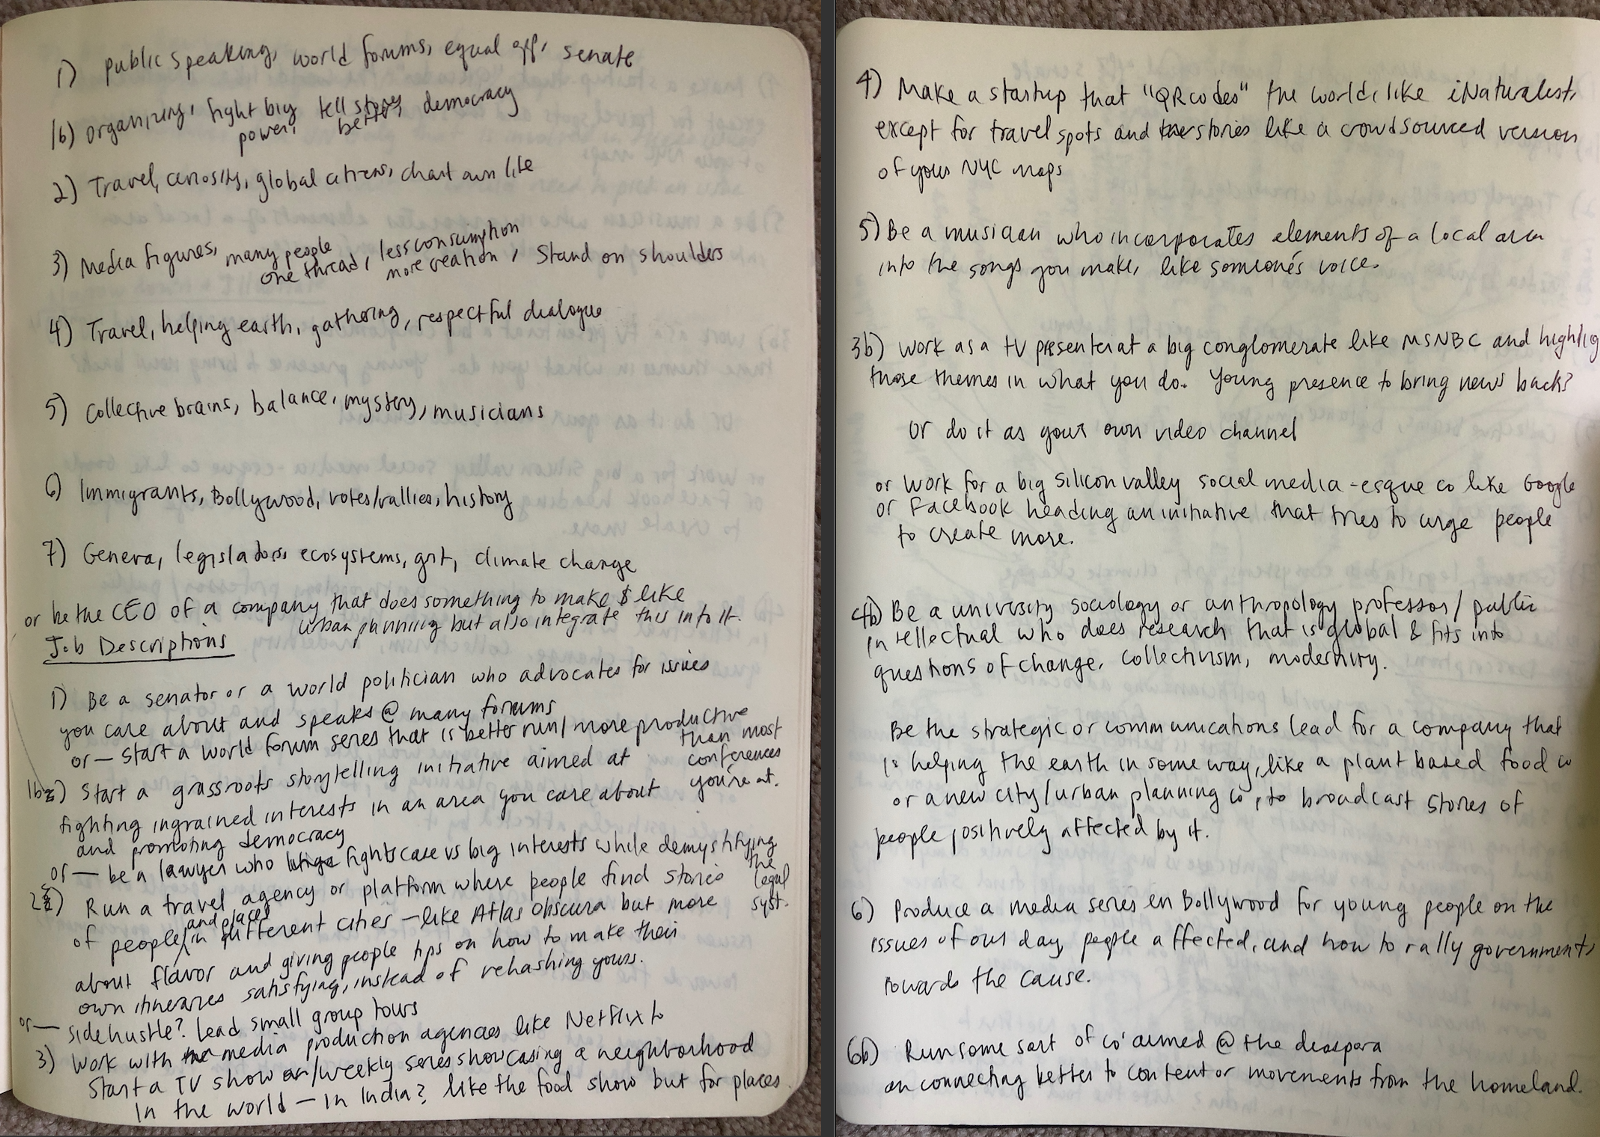 1) public speaking, world forums, equal opp, senate
1b) organizing, fight big power, tell stories better, democracy
2) Travel, curiosity, global citizens, chart own life
3) Media figures, many people one thread, less consumption more creation, Stand on shoulders
4) Travel, helping earth, gathering, respectful dialogue
5) Collective brains, balance, mystery, musicians
6) Immigrants, Bollywood, votes/rallies, history
7) Geneva, legislators, ecosystems, grit, climate change
or be the CEO of a company that does something to make $ like
urban planning but also integrate this into it.
Job Descriptions
1) Be a senator or a world politician who advocates for issues
you care about and speaks @ many forums
or — Start a world forum series that is better run/more productive
than most
conferences
you're at.
1b) Start a grassroots storytelling initiative aimed at
fighting ingrained interests in an area you care about
and promoting democracy
or — be a lawyer who fights case vs big interests while demystifying
the
legal
syst.
2) Run a travel agency or platform where people find stories
of people and places in different cities — like Atlas Obscura but more
about flavor and giving people tips on how to make their
own itineraries satisfying, instead of rehashing yours.
or — side hustle? Lead small group tours
3) Work with media production agencies like Netflix to
Start a TV show or/weekly series showcasing a neighborhood
in the world — in India? like the food show but for places
4) Make a startup that "QR codes" the world, like iNaturalist,
except for travel spots and stories like a crowdsourced version
of your NYC maps
5) Be a musician who incorporates elements of a local area
into the songs you make, like someone's voice.
3b) work as a TV presenter at a big conglomerate like MSNBC and highlig
those themes in what you do. Young presence to bring news back?
or do it as your own video channel
or work for a big silicon valley social media-esque co like Google
or Facebook heading an initiative that tries to urge people
to create more.
4b) Be a university sociology or anthropology professor/public
intellectual who does research that is global & fits into
questions of change, collectivism, modernity.
Be the strategic or communications lead for a company that
is helping the earth in some way, like a plant based food co
or a new city/urban planning co, to broadcast stories of
people positively affected by it.
6) Produce a media series in Bollywood for young people on the
issues of our day, people affected, and how to rally governments
towards the cause.
6b) Run some sort of co aimed @ the diaspora
on connecting better to content or movements from the homeland.